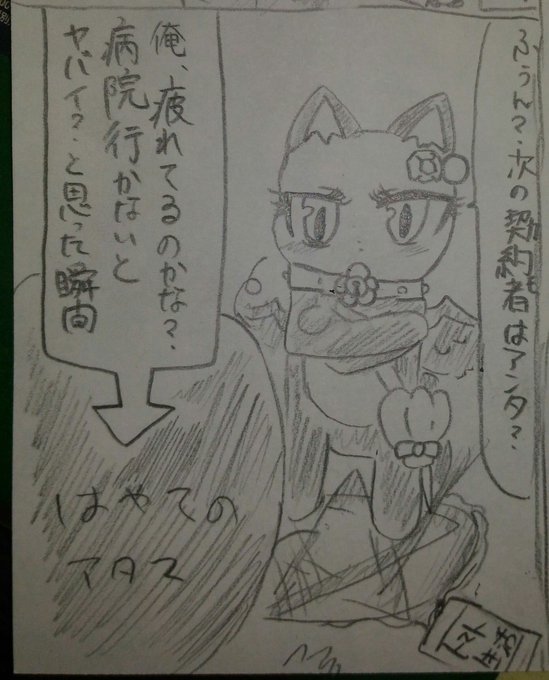 ふぅん?次の契約者はアンタ?
俺、疲れてるのかな?、
病院行かないと
ヤバイ?と思った瞬間
はやての
アタス